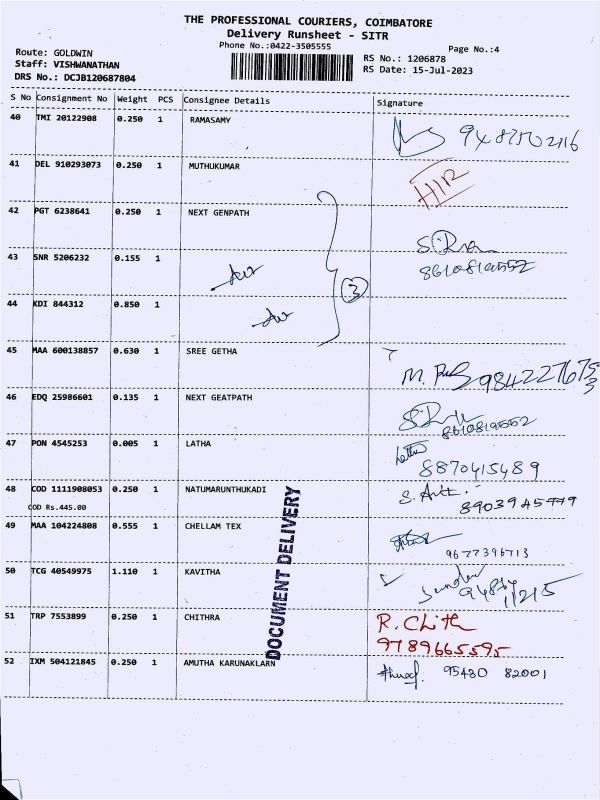 THE PROFESSIONAL COURIERS, COIMBATORE
Delivery Runsheet - SITR
Phone No.:0422-3505555
Page No.:4
Route: GOLDWIN
Staff: VISHWANATHAN
DRS No.: DCJB120687804
RS No.: 1206878
RS Date: 15-Jul-2023
S No Consignment No Weight PCS Consignee Details Signature
40 TMI 20122908 0.250 1 RAMASAMY
41 DEL 910293073 0.250 1 MUTHUKUMAR
42 PGT 6238641 0.250 1 NEXT GENPATH
43 SNR 5206232 0.155 1
8610819552
3
44 KDI 844312 0.850 1
45 MAA 600138857 0.630 1 SREE GETHA
46 EDQ 25986601 0.135 1 NEXT GEATPATH
8610819552
47 PON 4545253 0.005 1 LATHA
Latha
8870415489
48 COD 1111908053 0.250 1 NATUMARUNTHUKADI
COD Rs.445.00
49 MAA 104224808 0.555 1 CHELLAM TEX
9677396713
50 TCG 40549975 1.110 1 KAVITHA
51 TRP 7553899 0.250 1 CHITHRA R. Chith
9789665595
52 IXM 504121845 0.250 1 AMUTHA KARUNAKLARN 95430 82001
DOCUMENT DELIVERY